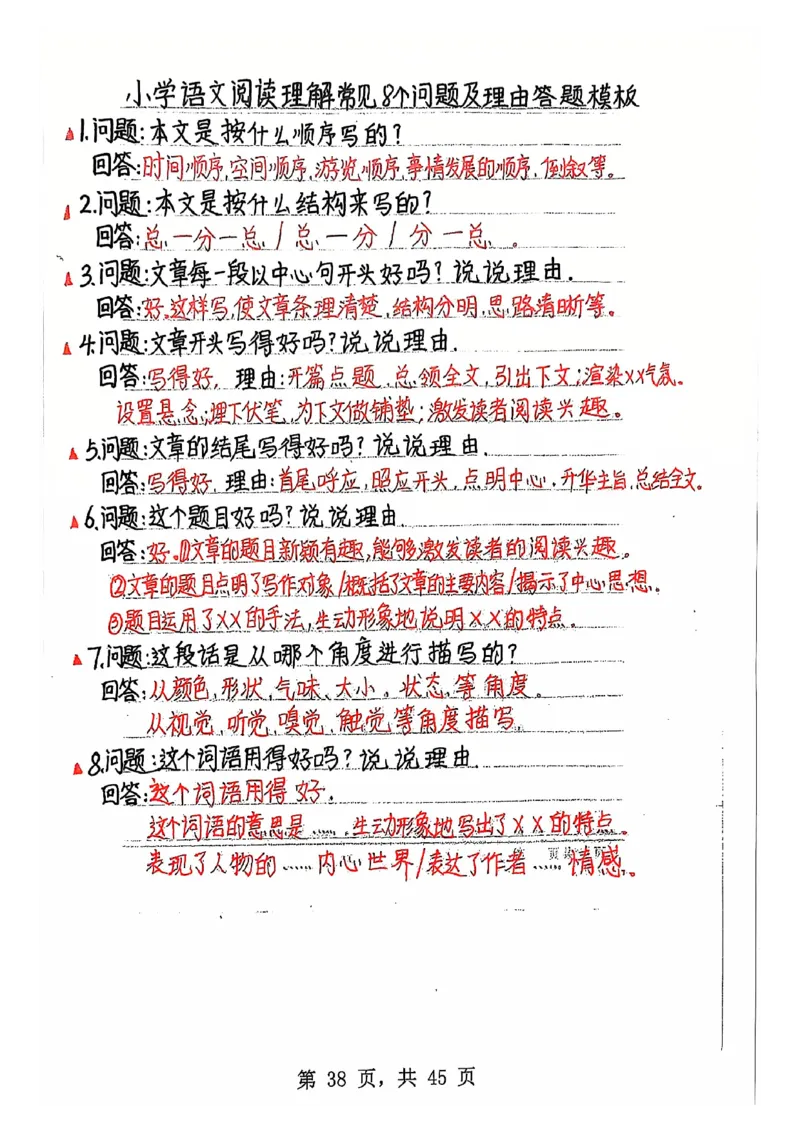 小学语文阅读理解常见8个问题及理由答题模板
1.问题:本文是按什么顺序写的?
回答:时间顺序,空间顺序,游览顺序,事情发展的顺序,倒叙等。
2.问题:本文是按什么结构来写的?
回答:总一分一总/总一分/分一总。
3.问题:文章每一段以中心句开头好吗?说说理由.
回答:好。这样写,使文章条理清楚,结构分明,思路清晰等。
4.问题:文章开头写得好吗?说说理由.
回答:写得好,理由:开篇点题,总领全文,引出下文;渲染XX气氛。
设置悬念;埋下伏笔,为下文做铺垫;激发读者阅读兴趣。
5.问题:文章的结尾写得好吗?说说理由.
回答:写得好,理由:首尾呼应,照应开头,点明中心,升华主旨,总结全文.
6.问题:这个题目好吗?说说理由.
回答:好.①文章的题目新颖有趣,能够激发读者的阅读兴趣。
②文章的题目点明了写作对象/概括了文章的主要内容/揭示了中心思想.
③题目运用了XX的手法,生动形象地说明XX的特点。
7.问题:这段话是从哪个角度进行描写的?
回答:从颜色,形状,气味、大小。状态,等角度。
从视觉,听觉,嗅觉,触觉等角度描写.
8.问题:这个词语用得好吗?说说理由.
回答:这个词语用得好.
这个词语的意思是……,生动形象地写出了XX的特点。
表现了人物的……内心世界/表达了作者……情感。
第 38 页,共 45 页